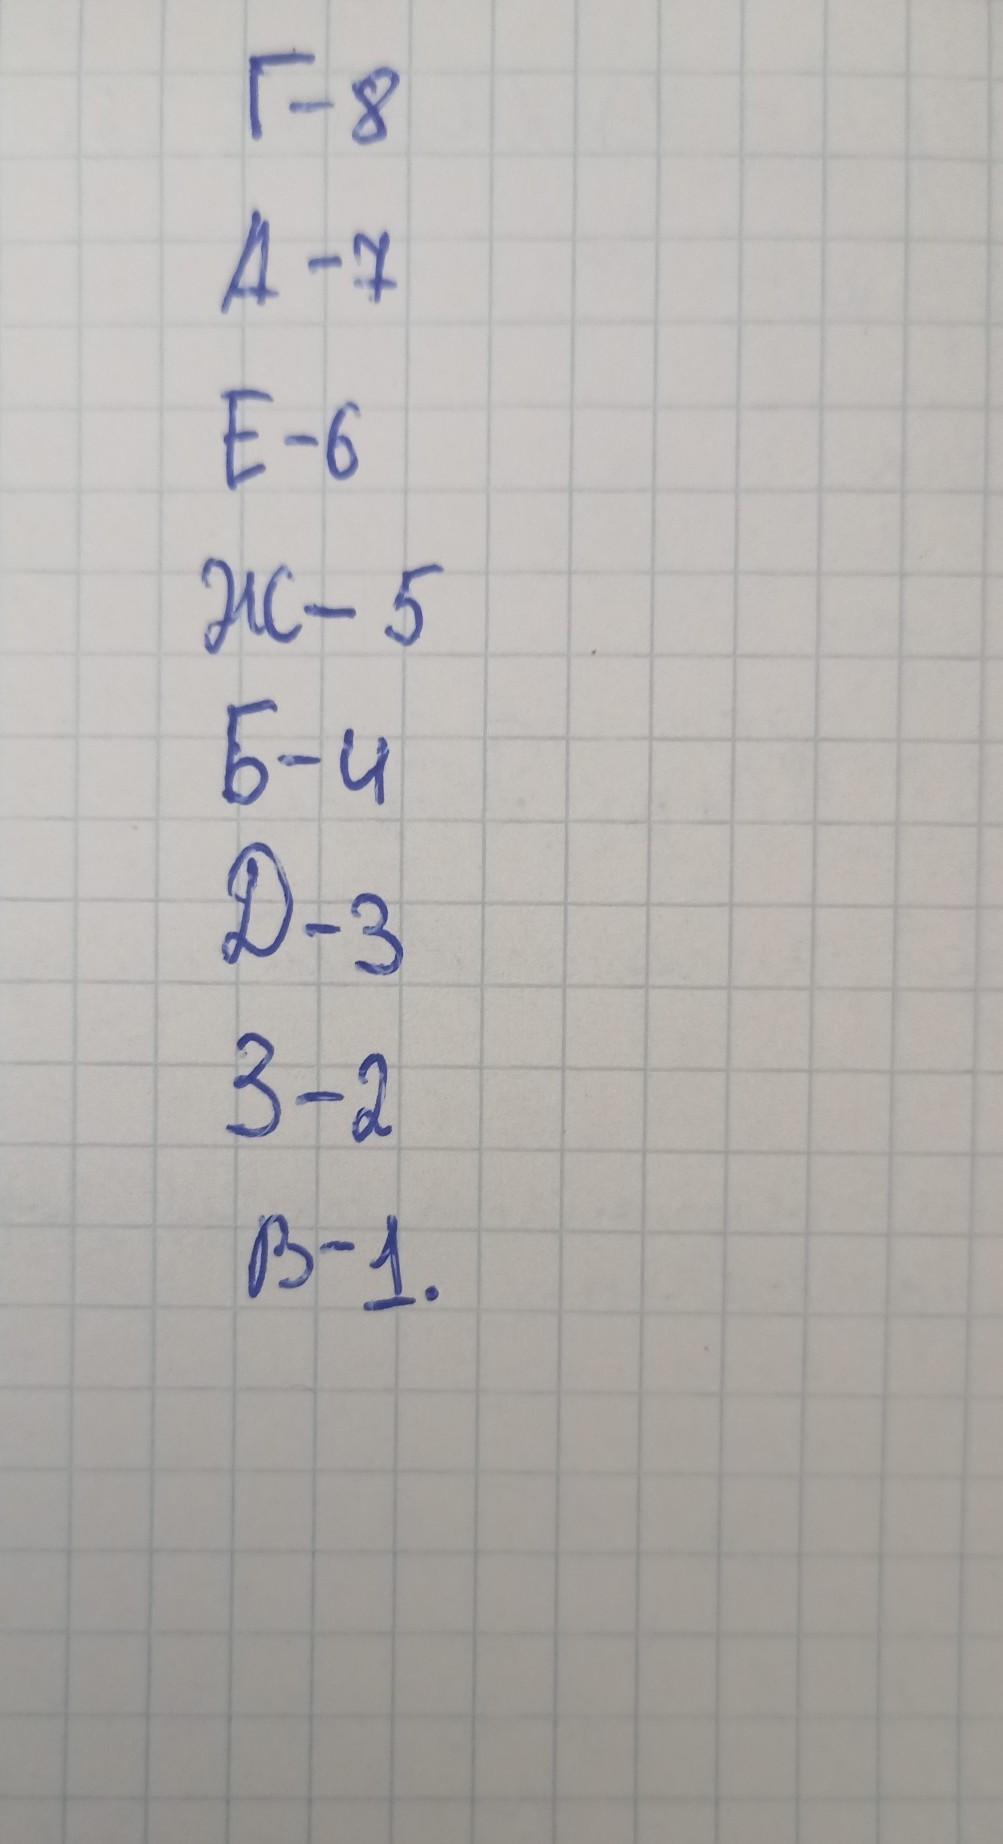 Г-8
А-7
Е-6
Ж-5
Б-4
Д-3
З-2
В-1.